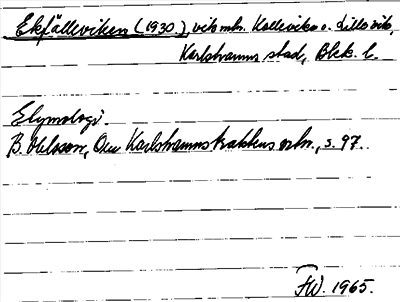 Ekfälleviken (1930), vik mh. Kolleviks o. Lillevik,
Karlshamns stad, Blek. l.
Etymologi.
B. Ohlsson, Om Karlshamnstraktens ortn., s. 97.
FW. 1965.